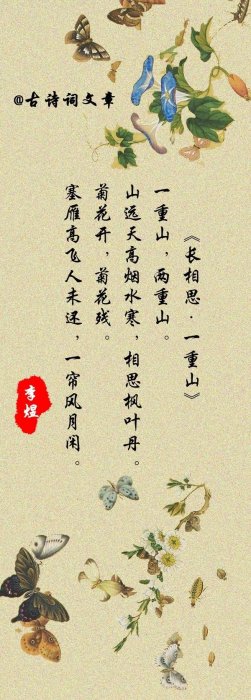 @古诗词文章
《长相思·一重山》
一重山，两重山。
山远天高烟水寒，相思枫叶丹。
菊花开，菊花残。
塞雁高飞人未还，一帘风月闲。
李煜